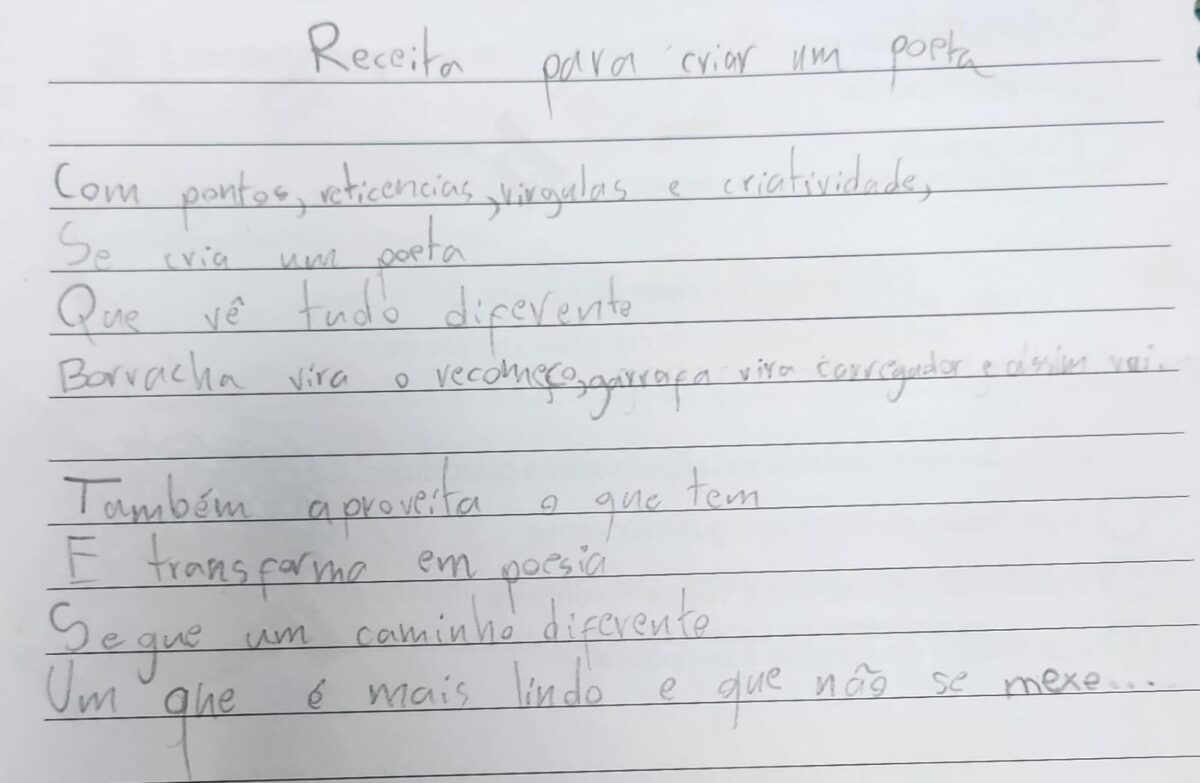 Receita para criar um poeta
Com pontos, reticencias, virgulas e criatividade,
Se cria um poeta
Que vê tudo diferente
Borracha vira o recomeço, garrafa vira carregador e assim vai.
Também aproveita o que tem
E transforma em poesia
Segue um caminho diferente
Um que é mais lindo e que não se mexe...